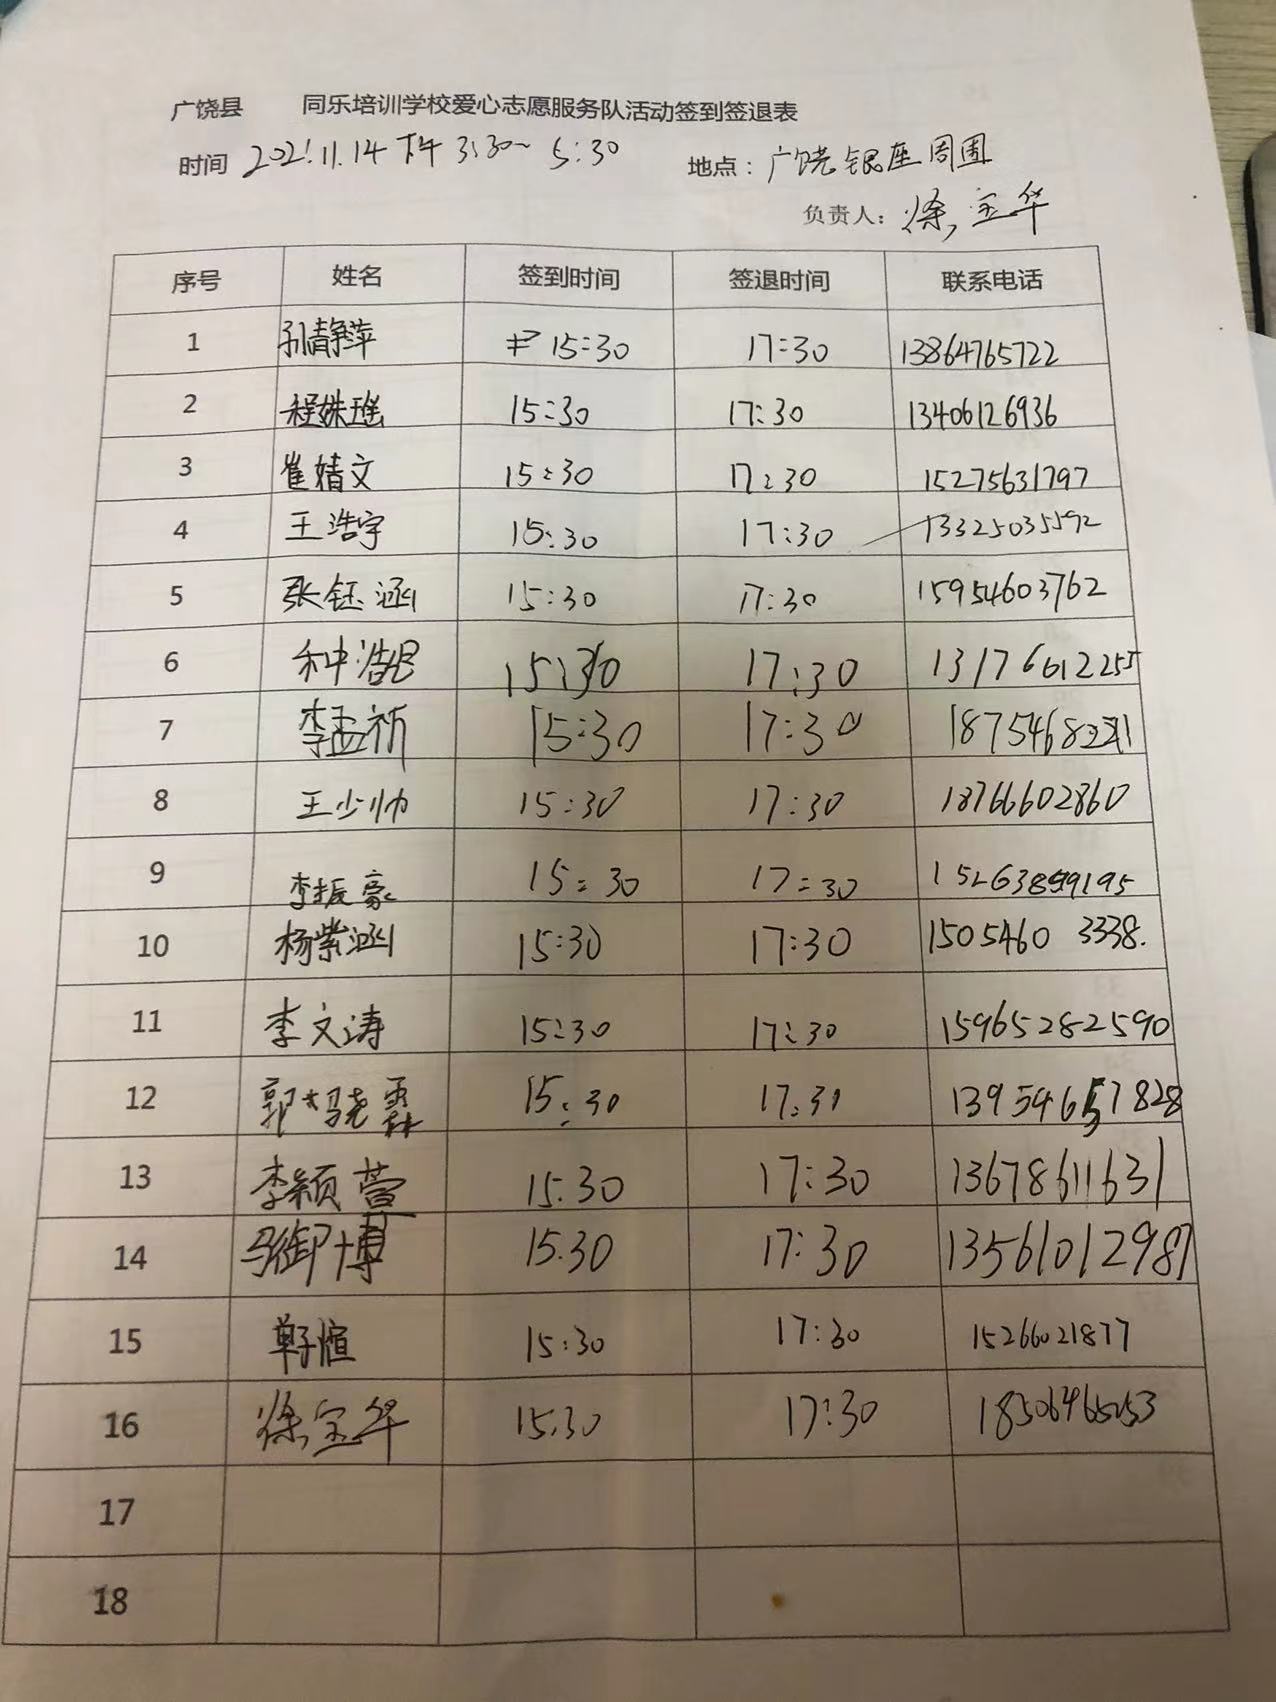 广饶县 同乐培训学校爱心志愿服务队活动签到签退表
时间 2021.11.14 下午 3:30~ 5:30 地点：广饶银座周围
负责人：徐宝华
序号 姓名 签到时间 签退时间 联系电话
1 孙静萍 15:30 17:30 13864765722
2 程姝瑶 15:30 17:30 13406126936
3 崔婧文 15:30 17:30 15275631797
4 王浩宇 15:30 17:30 13325035592
5 张钰涵 15:30 17:30 15954603762
6 种浩 15:30 17:30 13176612255
7 李孟祈 15:30 17:30 18754682
8 王少帅 15:30 17:30 18766602860
9 李振豪 15:30 17:30
10 杨紫涵 15:30 17:30 1505460 3338.
11 李文涛 15:30 17:30 15965282590
12 郭 晓霖 15:30 17:30 13954657828
13 李颖萱 15.30 17:30 13678611631
14 御博 15.30 17:30 13561012987
15 单子恒 15:30 17:30 15266021877
16 徐宝华 15:30 17:30 18506465053
17
18